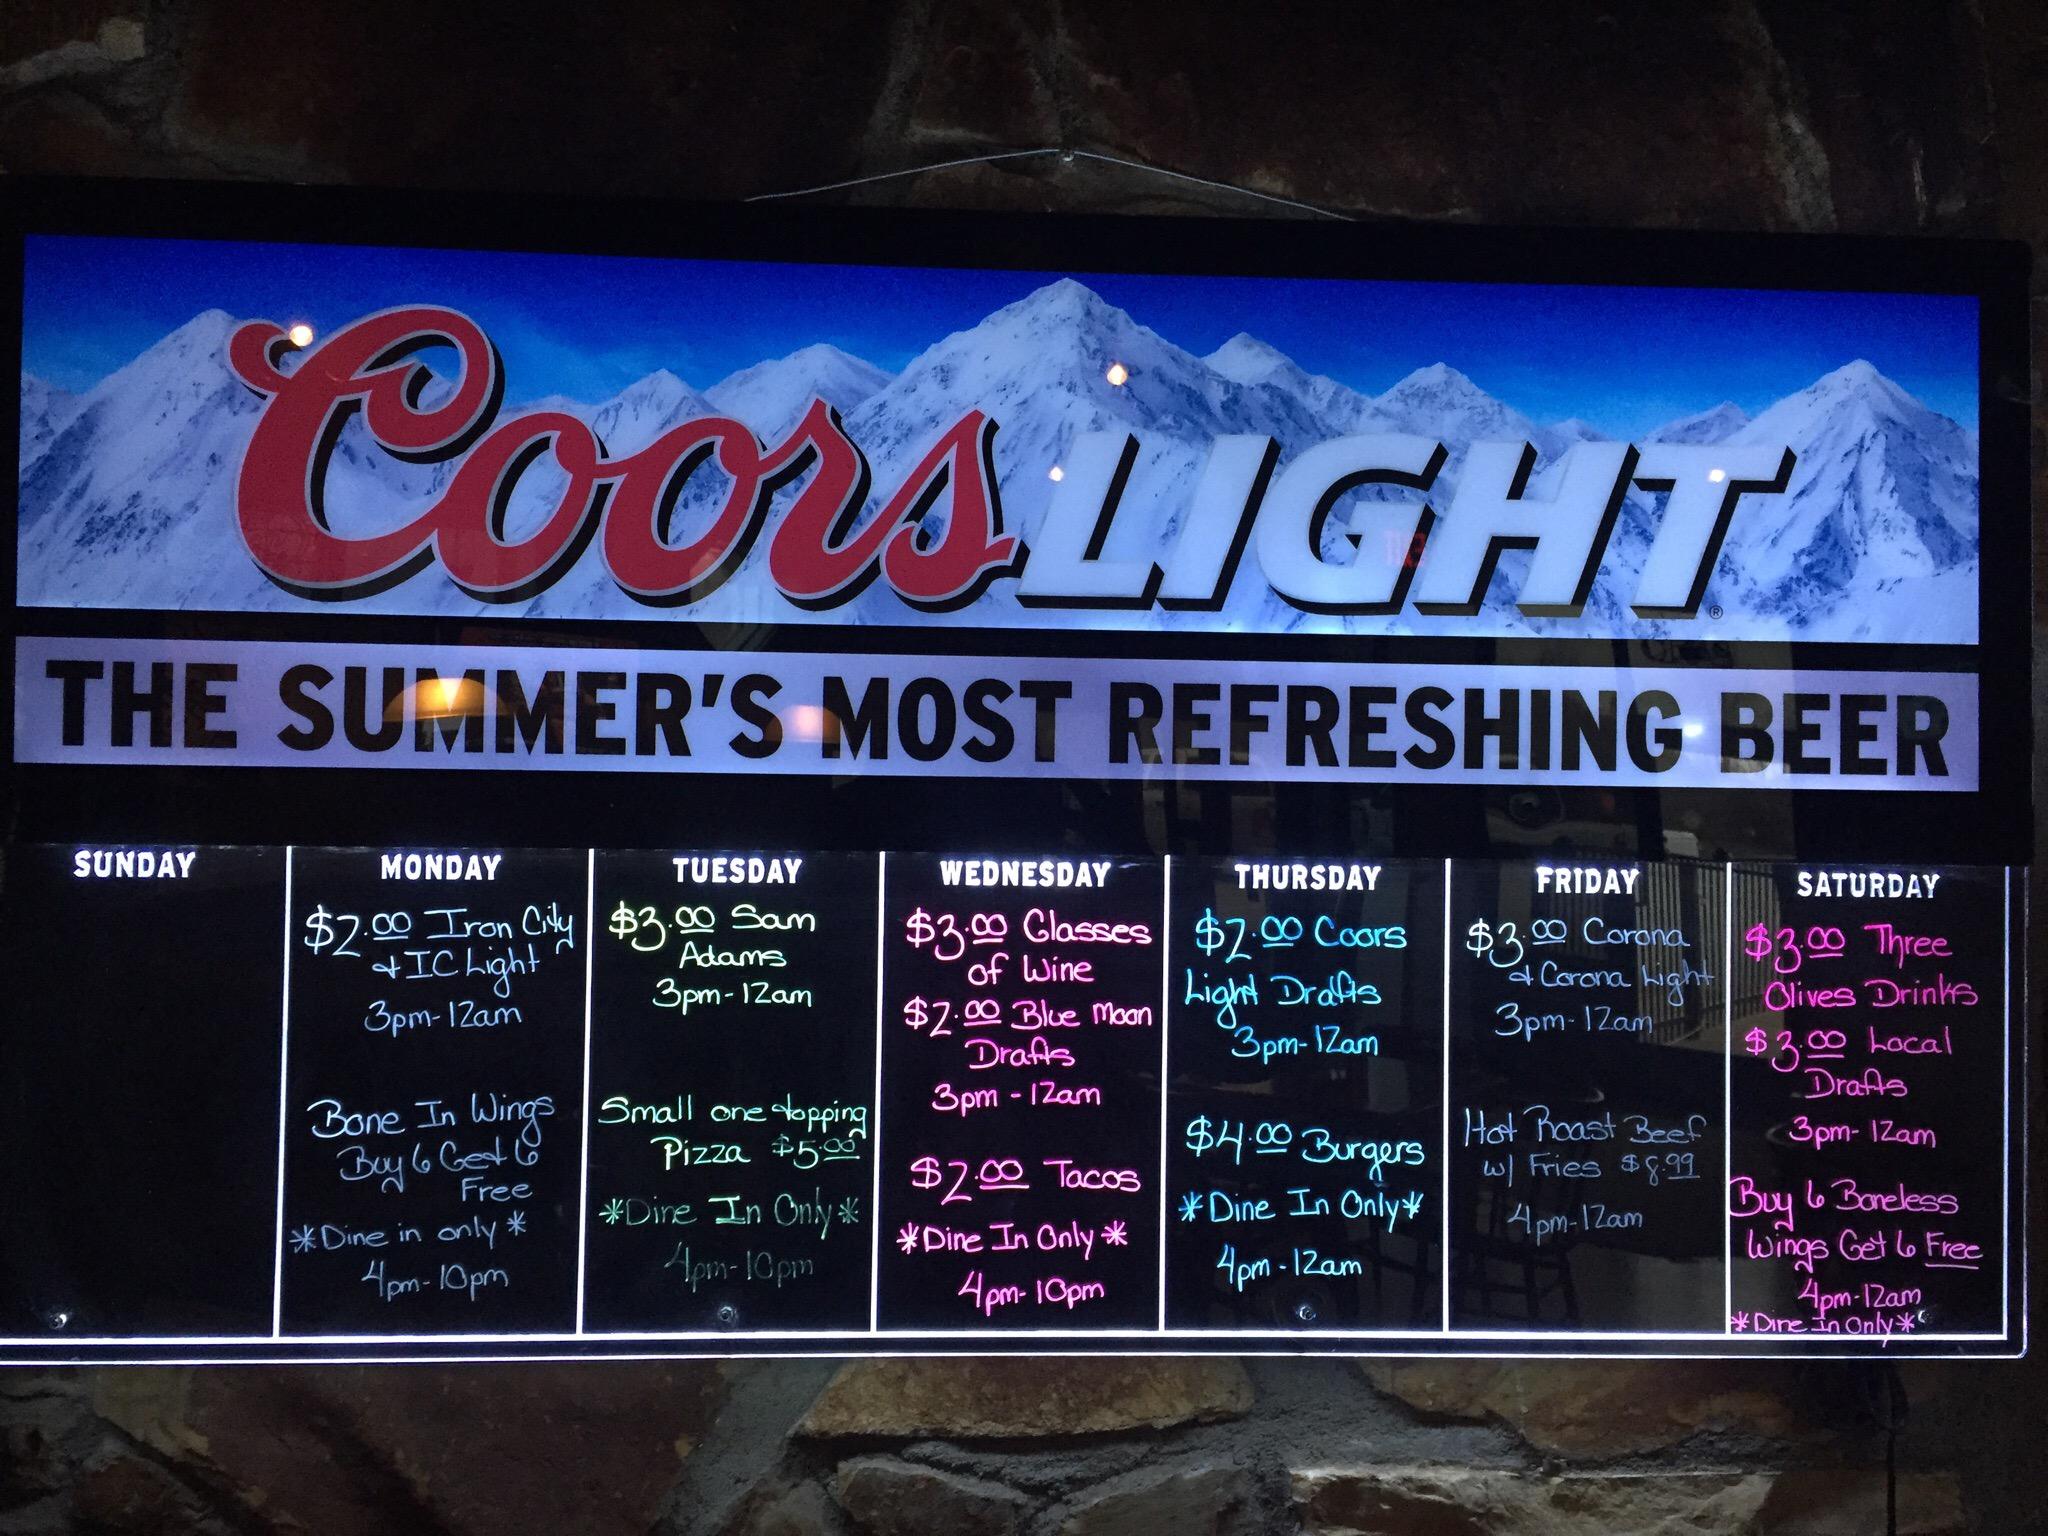 Coors LIGHT
®
THE SUMMER'S MOST REFRESHING BEER
SUNDAY
MONDAY
$2.00 Iron City
& IC Light
3pm-12am
Bone In Wings
Buy 6 Get 6
Free
*Dine in only*
4pm-10pm
TUESDAY
$3.00 Sam
Adams
3pm-12am
Small one topping
Pizza $5.00
*Dine In Only*
4pm-10pm
WEDNESDAY
$3.00 Glasses
of Wine
$2.00 Blue Moon
Drafts
3pm-12am
$2.00 Tacos
*Dine In Only*
4pm-10pm
THURSDAY
$2.00 Coors
Light Drafts
3pm-12am
$4.00 Burgers
*Dine In Only*
4pm-12am
FRIDAY
$3.00 Corona
& Corona Light
3pm-12am
Hot Roast Beef
w/ Fries $8.99
4pm-12am
SATURDAY
$3.00 Three
Olives Drinks
$3.00 Local
Drafts
3pm-12am
Buy 6 Boneless
Wings Get 6 Free
4pm-12am
*Dine In Only*